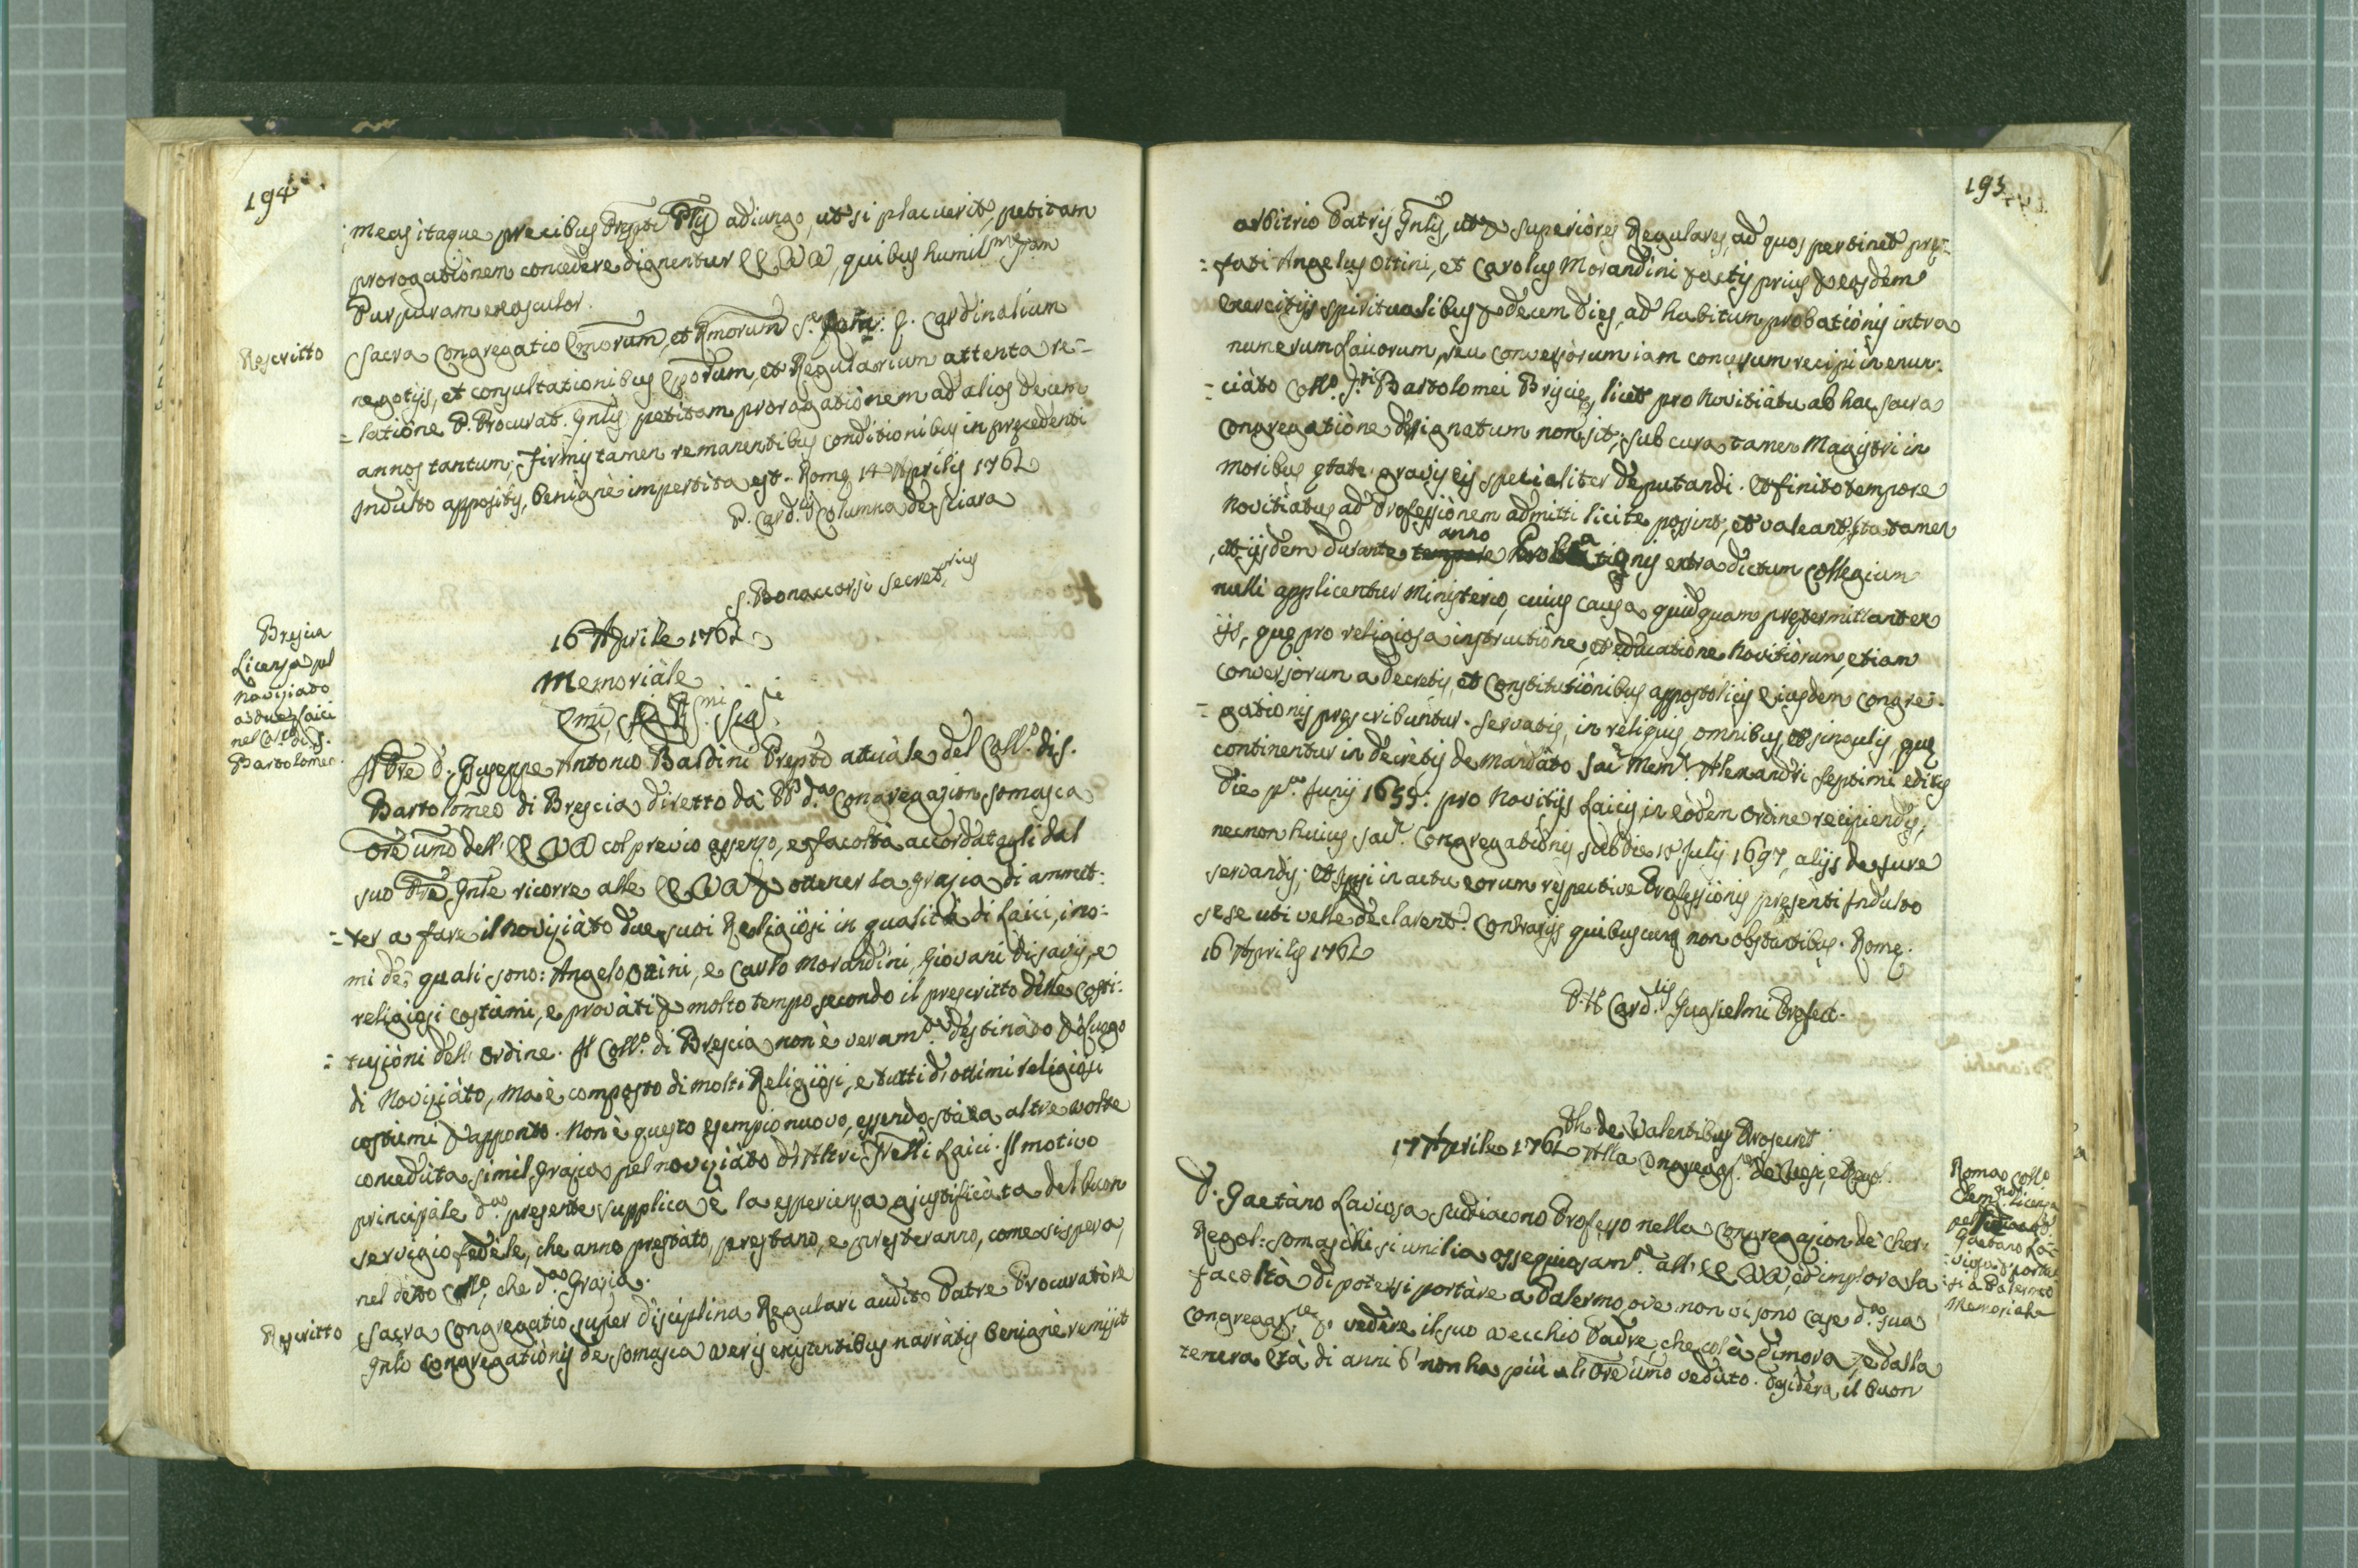 194
meas itaque precibus Prepti Plis adiungo, ut si placuerit, petitam
prorogationem concedere dignentur EE VV, quibus humilme sam
Purpuram exosculor.
Rescritto
Sacra Congregatio Emorum, et Rmorum S. R. E. Cardinalium
negotijs, et consultationibus Eporum, et Regularium attenta re=
=latione P. Procurat. Gnlis petitam prorogationem ad alios decem
annos tantum; firmis tamen remanentibus conditionibus in precedenti
Indulto appositis, benignè impertita est. Rome 14 Aprilis 1762
P. Card.lis Columna de Sciara
S. Bonaccorsi Secret.rius
Brescia
Licenza pel
Noviziato
a due laici
nel Coll.o di S.
Bartolomeo.
16 Aprile 1762
Memoriàle
Emi, Sig.i
Il Pre D. Giuseppe Antonio Baldini Prepto attuàle del Coll.o di S.
Bartolomeo di Brescia diretto dà PP d.a Congregazion Somasca
Ore umo dell' EE VV col previo assenzo, e facoltà accordatagli dal
suo Pre Gnle ricorre alle EE VV p ottener la grazia di ammet=
=ter a fare il Noviziàto due suoi Religiosi in qualità di Laici, i no=
mi de' quali sono: Angelo Ottini, e Carlo Morandini, Giovani di savij, e
religiosi costumi, e provàti p molto tempo secondo il prescritto delle Costi=
=tuzioni dell' ordine. Il Coll.o di Brescia non è veram.te destinàto p luogo
di Noviziàto, ma è composto di molti Religiosi, e tutti d' ottimi religiosi
costumi p apponto. Non è questo esempio nuovo, essendo stàta altre volte
concedùta simil grazia pel noviziàto d' Altri Frelli Laici. Il motivo
principàle d.a presente supplica è la esperienza giustificàta del buon
servigio fedèle, che anno prestàto, prestano, e presteranno, come si spera,
nel detto Coll.o, che d.a Grazia.
Rescritto
Sacra Congregatio super disciplina Regulari audito Patre Procuratòre
Gnli Congregationis de Somasca veris existentibus narràtis benignè remisit
195
arbitrio Patris Gnlis, ut p Superiòres Regulares, ad quos pertinet pre=
=fati Angelus Ottini, et Carolus Morandini factis prius p eosdem
exercitijs spiritualibus p decem dies, ad habitum probatiònis intra
numerum Laicorum, seu Conversòrum iam concessum recipi in enun=
=ciàto Coll.o S.ti Bartolomei Brixie, licet pro Novitiàtu ab hac Sacra
Congregatiòne designatum non sit, sub cura tamen Magistri in
moribus etate gravis eis specialiter deputandi. Et finito tempore
Novitiatus ad Professiònem admitti licite possint, et valeant; ita tamen
ut ijsdem durante tempore anno Probationis extra dictum Collegium
nulli applicentur Ministerio, cuius causa quidquam pretermittant ex
ijs, que pro religiosa instructiòne, et educatione Novitiòrum, etiam
conversòrum a decretis, et Constitutiònibus appostolicis eiusdem Congre=
=gationis prescribuntur. Servatis, in reliquis, omnibus et singulis, que
continentur in decrètis de Mandàto Sac. Mem. Alexandri Septimi editis
die p.a Junij 1655: pro Novitijs Laicis in eòdem Ordine recipiendis,
necnon huius Sac. Congregatiònis sub die 18 Julij 1697, alijs de jure
servandis; Et ipsi in actu eorum respective Professiònis presènti Indulto
sese uti velle declarent. Contrarijs quibuscumq non obstantibus. Rome.
16 Aprilis 1762
P. H Card.lis Guglielmi Prefect.
Ph. de Valentibus Prosecret
17 Aprile 1762 Alla Congregaz.e de Vesc.i, e Regol.
Roma Coll.o
Clem.no Licenza
pel
Gaetano La=
=viosa d' portar=
=si a Palermo
Memoriale
D. Gaetàno Laviosa Suddiacono Professo nella Congregazion de' Cher.
Regol: Somaschi si umilia ossequiosam.te all' EE VV, ed implora la
facoltà di potersi portàre a Palermo, ove non vi sono case d.a sua
Congregaz.ne, p vedère il suo vecchio Padre, che colà dimora, e dalla
tenera età di anni 6 non ha più l' Ore umo vedùto. Desidera il buon